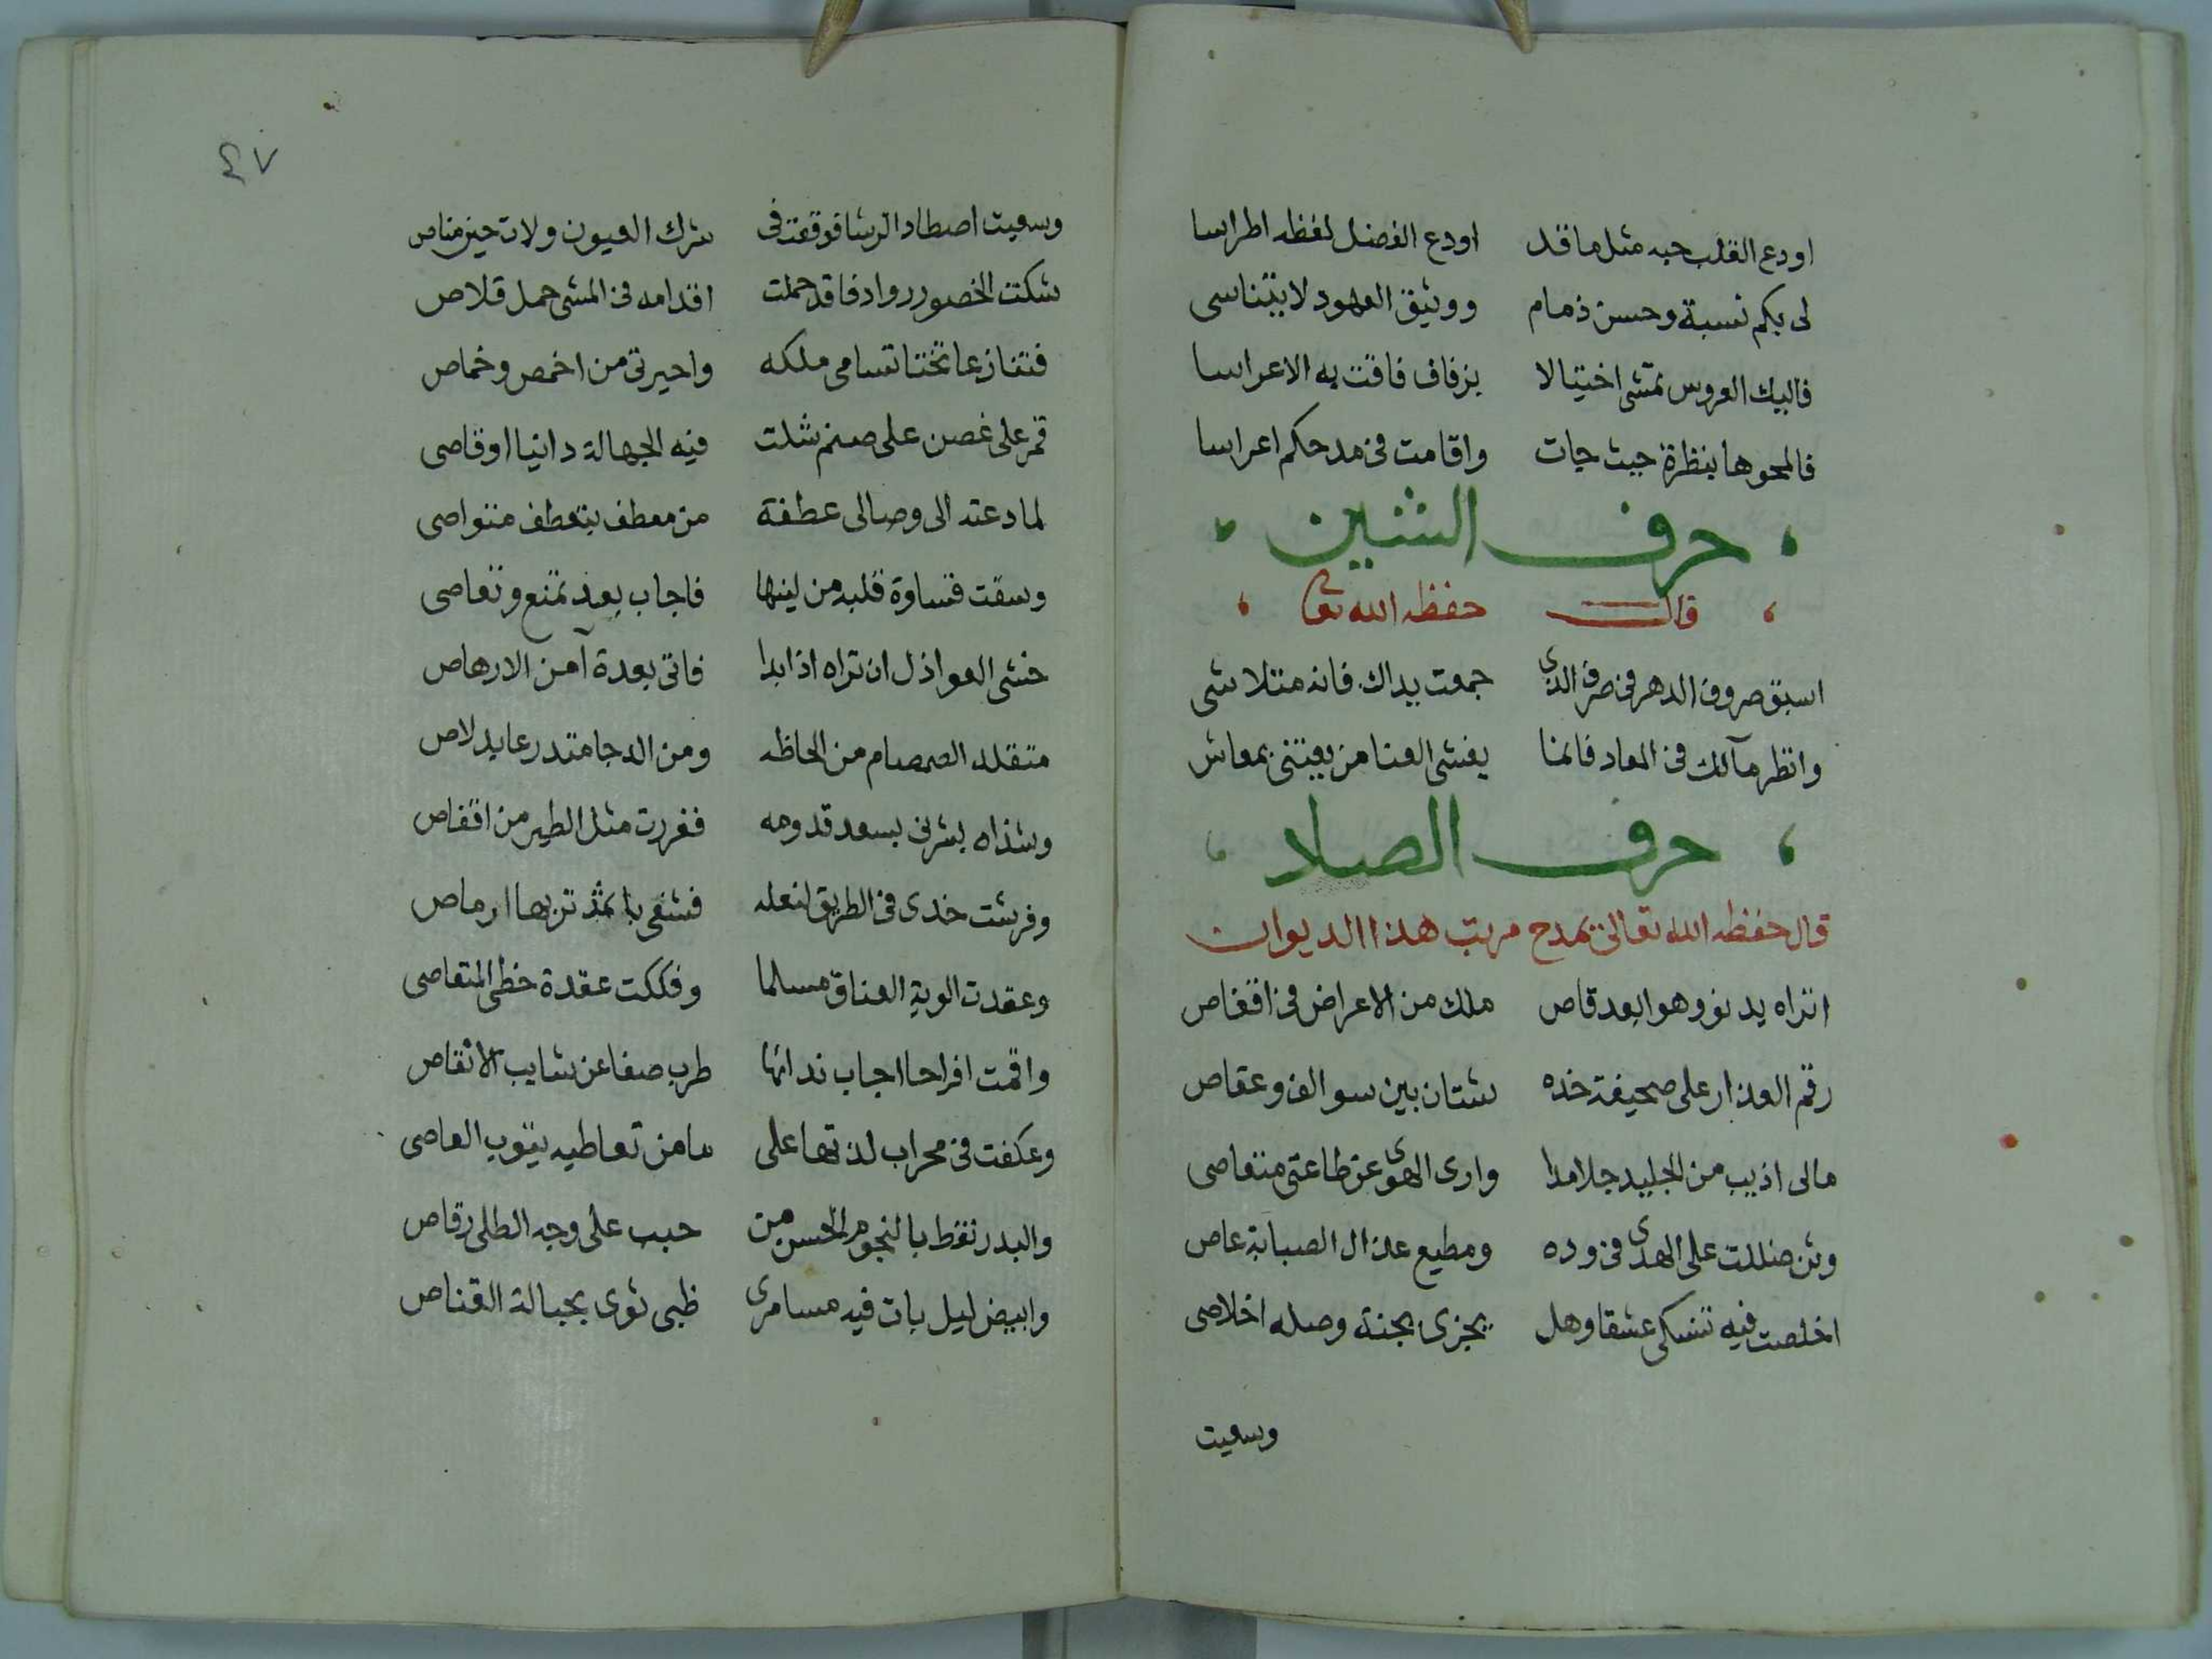 اودع القلب حبه مثل ما قد اودع الفضل لفظه اطراسا
لى بكم نسبة وحسن ذمام ووثيق العهود لا يتناسى
فاليك العروس تمشى اختيالا بزفاف فاقت به الاعراسا
فالمحوها بنظرة حيث جات واقامت فى مدحكم اعراسا
حرف الشين
قال حفظه الله تعا
اسبق صروف الدهر فى صرف الذى جمعت يداك فانه متلاشى
وانظر مآلك فى المعاد فانما يفشى العنا من يعتنى بمعاش
حرف الصاد
قال حفظه الله تعالى يمدح مرتب هذا الديوان
اتراه يدنو وهو ابعد قاص ملك من الاعراض فى اقفاص
رقم العذار على صحيفة خده شتان بين سوالف وعقاص
مالى اذيب من الجليد جلامدا وارى الهوى عن طاعتى متعاصى
وئن ضللت على الهدى فى وده ومطيع عذال الصبابة عاص
اخلصت فيه تنسكى عشقا وهل يجزى بجنة وصله اخلاصى
وسعيت
٤٧
وسعيت اصطاد الرشا فوقعت فى شرك العيون ولات حين مناص
شكت الخصور روادفا قد حملت اقدامه فى المشى حمل قلاص
فتنازعا تختا تسامى ملكه واحيرتى من اخمص وخماص
قمر على غصن على صنم شلت فيه الجهالة دانيا او قاصى
لما دعته الى وصالى عطفة من معطف يتعطف متواصى
وسقت قساوة قلبه من لينها فاجاب بعد تمنع وتعاصى
خشى العواذل ان تراه اذا بدا فاتى بعدة آمن الارهاص
متقلد الصمصام من الحاظه ومن الدجا متدرعا بدلاص
وشذاه بشرنى بسعد قدومه ففررت مثل الطير من اقفاص
وفرشت خدى فى الطريق لنعله فشفى باثمد تربها ارماص
وعقدت الوية العناق مسلما وفككت عقدة خطى المتعاصى
واقمت افراحا اجاب ندائها طرب صفا عن شايب الانقاص
وعكفت فى محراب لذتها على ما من تعاطيه يتوب العاصى
والبدر نقط بالنجوم الحسن من حبب على وجه الطلى رقاص
وابيض ليل بات فيه مسامرى ظبى ثوى بحبالة القناص